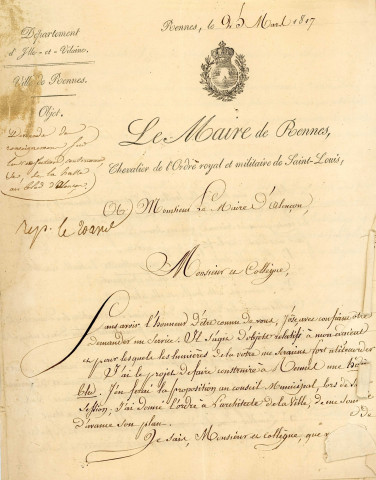 Département
d'Ille-et-Vilaine.
Ville de Rennes.
Objet.
Demande de
renseignemens sur
de la halle
au bled d'Alençon
Rennes, le 25 Mars 1817
Le Maire de Rennes,
Chevalier de l'Ordre royal et militaire de Saint-Louis,
A Monsieur Le Maire D'Alençon,
rep. le
Monsieur et Collègue,
Sans avoir l'honneur d'être connu de vous, j'ose avec confiance
demander un service. Il s'agit d'objets relatifs à mon
et pour lesquels les lumières de la votre me seraient fort utiles
J'ai le projet de faire construire à Rennes une
bled. J'en ferai la proposition au conseil Municipal, lors de sa
Session, J'ai donné l'ordre à l'architecte de la Ville, de me
d'avance son plan.
Je sais, Monsieur et collègue, que